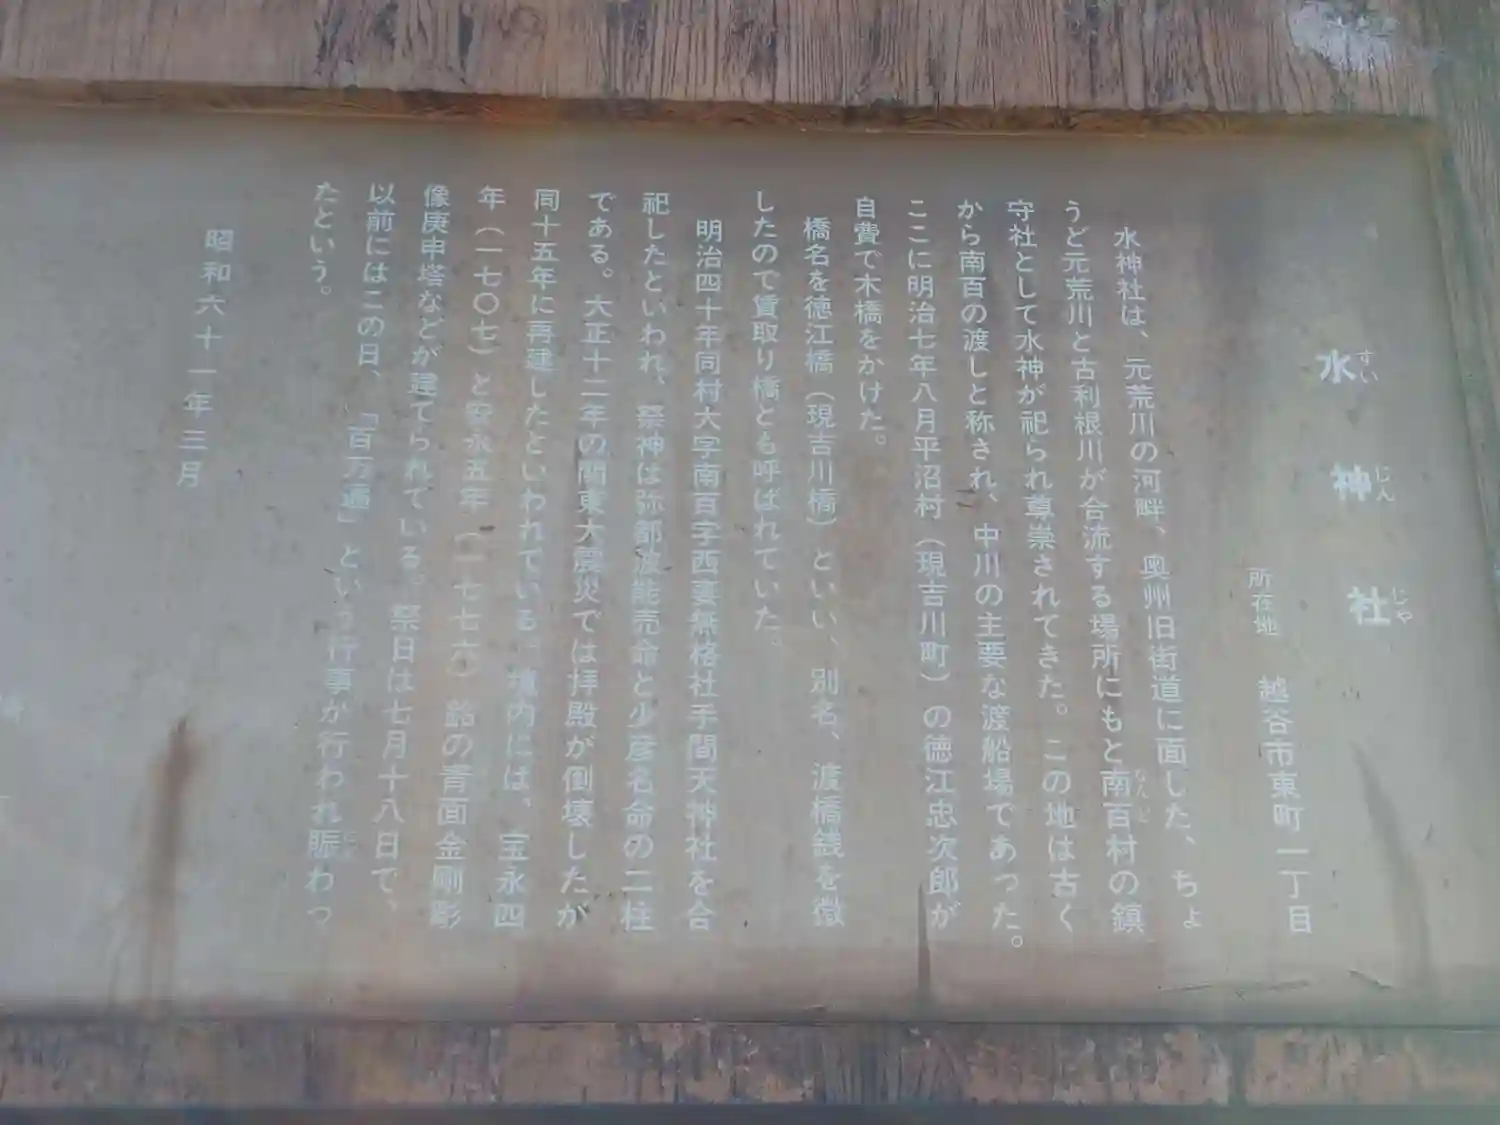 水神社
すいじんじゃ
所在地 越谷市東町一丁目
水神社は、元荒川の河畔、奥州旧街道に面した、ちょ
うど元荒川と古利根川が合流する場所にもと南百村の鎮
なんど
守社として水神が祀られ尊崇されてきた。この地は古く
から南百の渡しと称され、中川の主要な渡船場であった。
ここに明治七年八月平沼村（現吉川町）の徳江忠次郎が
自費で木橋をかけた。
橋名を徳江橋（現吉川橋）といい、別名、渡橋銭を徴
したので賃取り橋とも呼ばれていた。
明治四十年同村大字南百字西裏無格社手間天神社を合
祀したといわれ、祭神は弥都波能売命と少彦名命の二柱
である。大正十二年の関東大震災では拝殿が倒壊したが
同十五年に再建したといわれている。境内には、宝永四
年（一七〇七）と安永五年（一七七六）銘の青面金剛彫
像庚申塔などが建てられている。祭日は七月十八日で、
以前にはこの日、「百万遍」という行事が行われ賑わっ
たという。
昭和六十一年三月